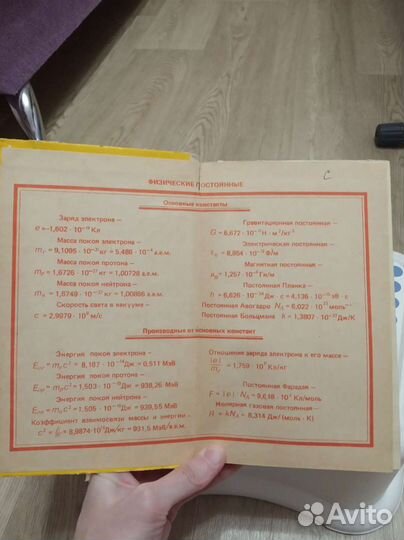 ФИЗИЧЕСКИЕ ПОСТОЯННЫЕ
С
Основные константы
Заряд электрона —
e = -1,602 · 10⁻¹⁹ Кл
Масса покоя электрона —
mₑ = 9,1095 · 10⁻³¹ кг = 5,486 · 10⁻⁴ а.е.м.
Масса покоя протона —
mₚ = 1,6726 · 10⁻²⁷ кг = 1,00728 а.е.м.
Масса покоя нейтрона —
mₙ = 1,6749 · 10⁻²⁷ кг = 1,00866 а.е.м.
Скорость света в вакууме —
c = 2,9979 · 10⁸ м/с
Гравитационная постоянная —
G = 6,672 · 10⁻¹¹ Н · м²/кг²
Электрическая постоянная —
ε₀ = 8,854 · 10⁻¹² Ф/м
Магнитная постоянная —
μ₀ = 1,257 · 10⁻⁶ Гн/м
Постоянная Планка —
h = 6,626 · 10⁻³⁴ Дж · с = 4,136 · 10⁻¹⁵ эВ · с
Постоянная Авогадро N_A = 6,022 · 10²³ моль⁻¹
Постоянная Больцмана k = 1,3807 · 10⁻²³ Дж/К
Производные от основных констант
Энергия покоя электрона —
E₀ₑ = mₑc² = 8,187 · 10⁻¹⁴ Дж = 0,511 МэВ
Энергия покоя протона —
E₀ₚ = mₚc² = 1,503 · 10⁻¹⁰ Дж = 938,26 МэВ
Энергия покоя нейтрона —
E₀ₙ = mₙc² = 1,505 · 10⁻¹⁰ Дж = 939,55 МэВ
Коэффициент взаимосвязи массы и энергии —
c² = E/m = 8,9874 · 10¹⁶ Дж/кг = 931,5 МэВ/а.е.м.
Отношение заряда электрона к его массе —
|e|/mₑ = 1,759 · 10¹¹ Кл/кг
Постоянная Фарадея —
F = |e| · N_A = 9,648 · 10⁴ Кл/моль
Молярная газовая постоянная —
R = kN_A = 8,314 Дж/(моль · К)
Avito